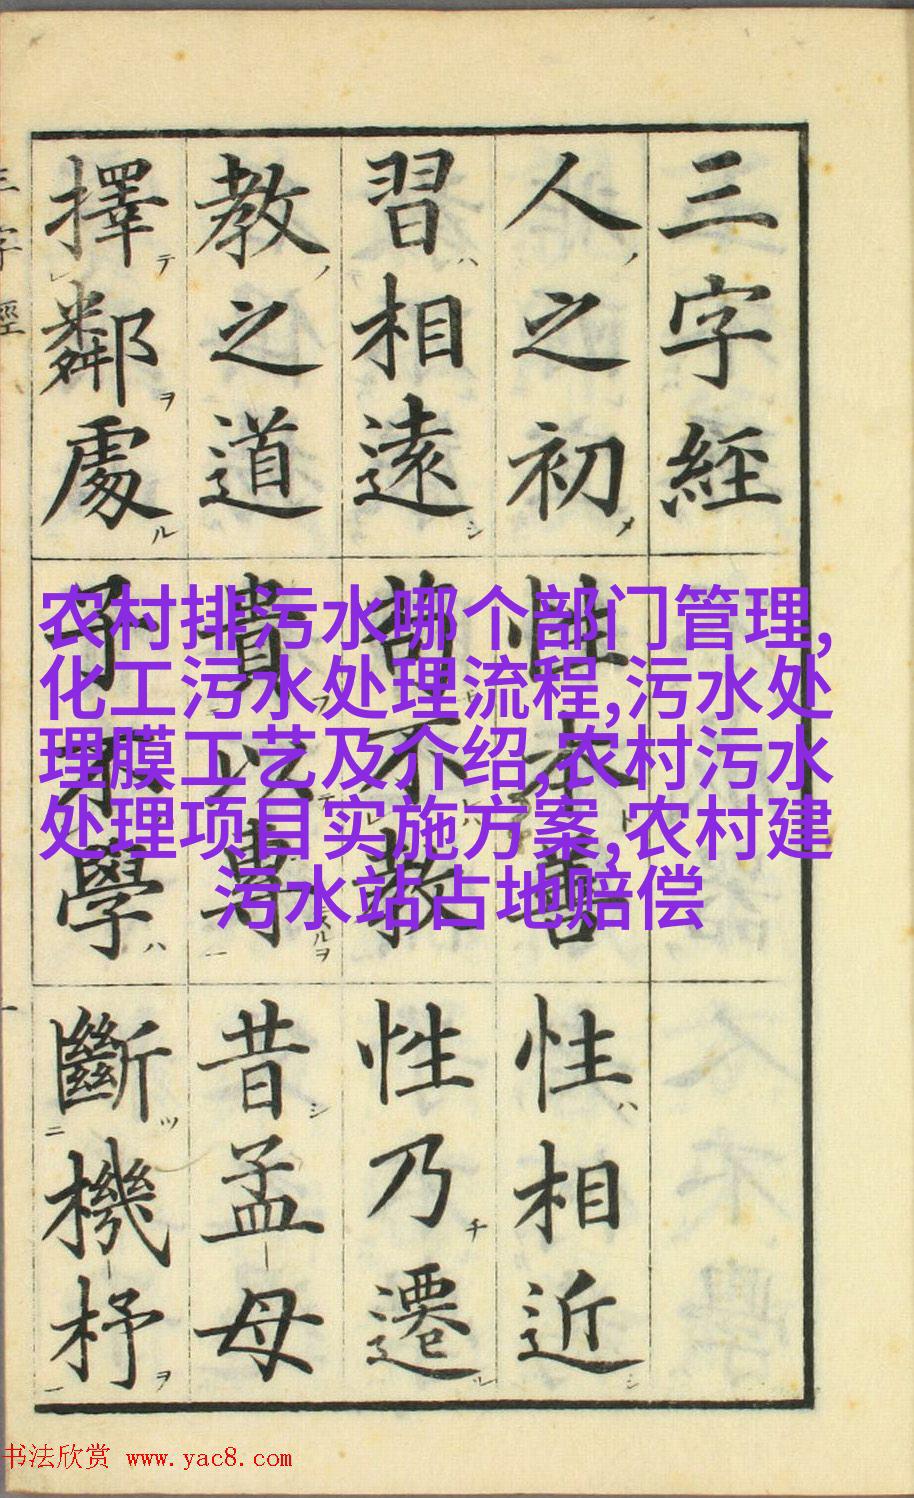 三字經
人之初 性本善 性相近
習相遠 苟不教 性乃遷
教之道 貴以專 昔孟母
擇鄰處 子不學 斷機杼
三字經 一
农村排污水哪个部门管理,
化工污水处理流程,污水处
理膜工艺及介绍,农村污水
处理项目实施方案,农村建
污水站占地赔偿
书法欣赏 www.yac8.com